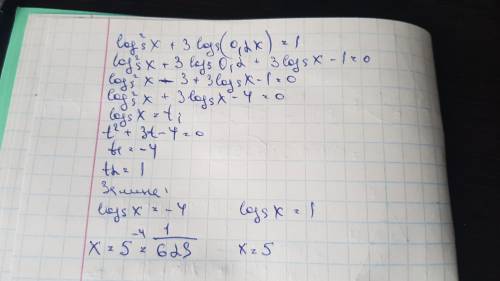 log²₅x + 3 log₅(0,2x) = 1
log²₅x + 3 log₅0,2 + 3 log₅x - 1 = 0
log²₅x - 3 + 3 log₅x - 1 = 0
log²₅x + 3 log₅x - 4 = 0
log₅x = t;
t² + 3t - 4 = 0
t₁ = -4
t₂ = 1
Замена:
log₅x = -4 log₅x = 1
x = 5⁻⁴ = 1/625 x = 5